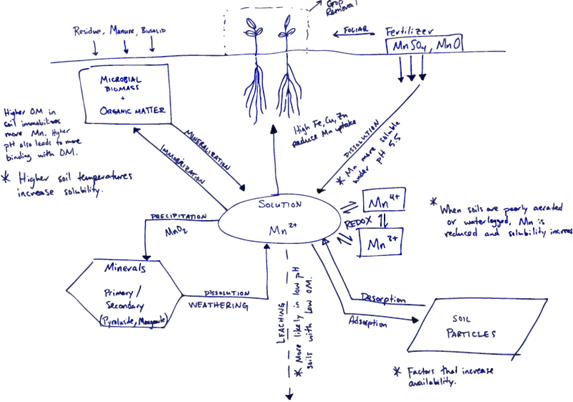 Crop
Removal
Residue, Manure, Biosolid
FOLIAR
Fertilizer
MnSO4, MnO
MICROBIAL
BIOMASS
+
ORGANIC MATTER
Higher OM in
soil immobilizes
more Mn. Higher
pH also leads to more
binding with OM.
* Higher soil temperatures
increase solubility.
MINERALIZATION
IMMOBILIZATION
High Fe, Cu, Zn
reduce Mn uptake
DISSOLUTION
* Mn more soluble
under pH 5.5
SOLUTION
Mn2+
REDOX
Mn4+
Mn2+
* When soils are poorly aerated
or waterlogged, Mn is
reduced and solubility increases
PRECIPITATION
MnO2
Minerals
Primary/
Secondary
(Pyrolusite, Manganite)
DISSOLUTION
WEATHERING
LEACHING
* More likely in low pH
soils with low OM.
Desorption
Adsorption
SOIL
PARTICLES
* Factors that increase
availability.